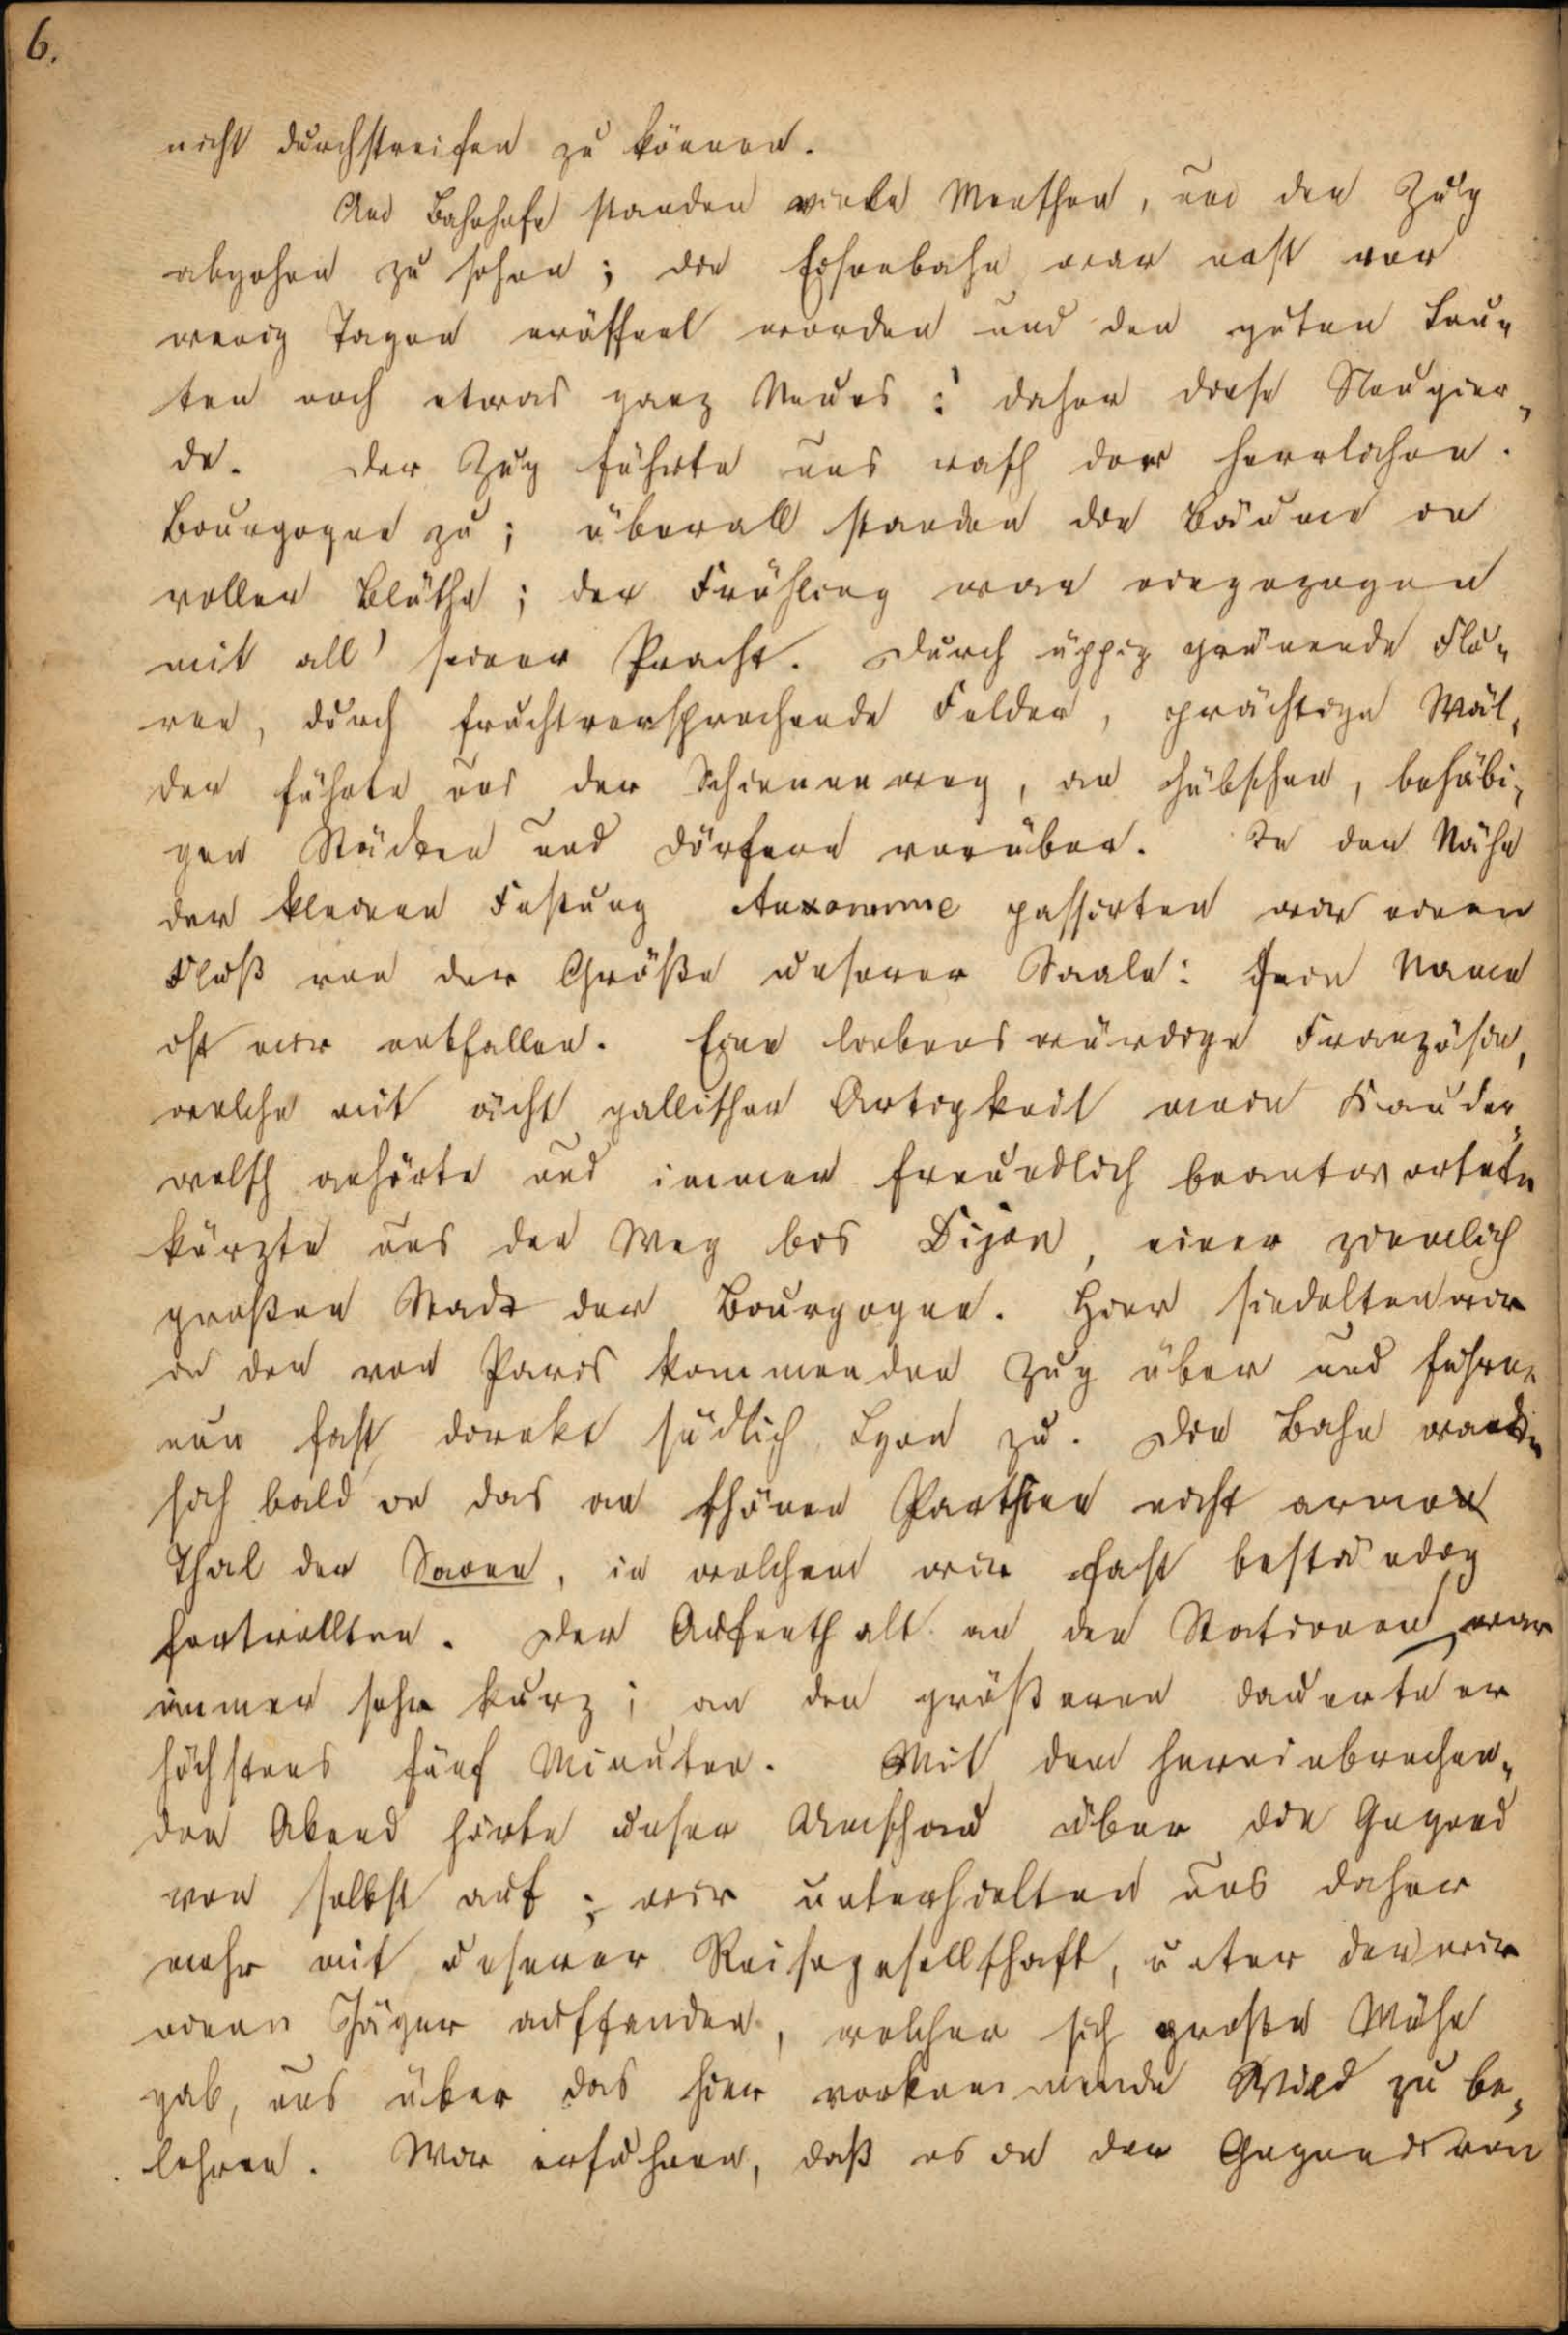 6.
nicht durchstreifen zu können.
Am Bahnhofe standen viele Menschen, um den Zug
abgehen zu sehen; die Eisenbahn war erst vor
wenig Tagen eröffnet worden und den guten Leu-
ten noch etwas ganz Neues: daher diese Neugier-
de. Der Zug führte uns rasch der herrlichen
Bourgogne zu; überall standen die Bäume in
voller Blüthe; der Frühling war eingezogen
mit all' seiner Pracht. Durch üppig grünende Flu-
ren, durch fruchtversprechende Felder, prächtige Wäl-
der führte uns der Schienenweg, an hübschen, behäbi-
gen Städten und Dörfern vorüber. In der Nähe
der kleinen Festung Auxonne passirten wir einen
Fluß von der Größe unserer Saale: Sein Name
ist mir entfallen. Eine liebenswürdige Französin,
welche mit ächt gallischer Artigkeit mein Kauder-
welsch anhörte und immer freundlich beantwortete
kürzte uns den Weg bis Dijon, einer ziemlich
großen Stadt der Bourgogne. Hier siedelten wir
in den von Paris kommenden Zug über und fuhren
nun fast direkt südlich Lyon zu. Die Bahn wandte
sich bald in das an schönen Parthien nicht arme
Thal der Saone, in welchem wir fast beständig
fortrollten. Der Aufenthalt an den Stationen war
immer sehr kurz; an den größeren dauerte er
höchstens fünf Minuten. Mit dem hereinbrechen-
den Abend hörte unser Umschau über die Gegend
von selbst auf; wir unterhielten uns daher
mehr mit unserer Reisegesellschaft, unter der wir
einen Jäger auffanden, welcher sich große Mühe
gab, uns über das hier vorkommende Wild zu be-
lehren. Wir erfuhren, daß es in der Gegend von